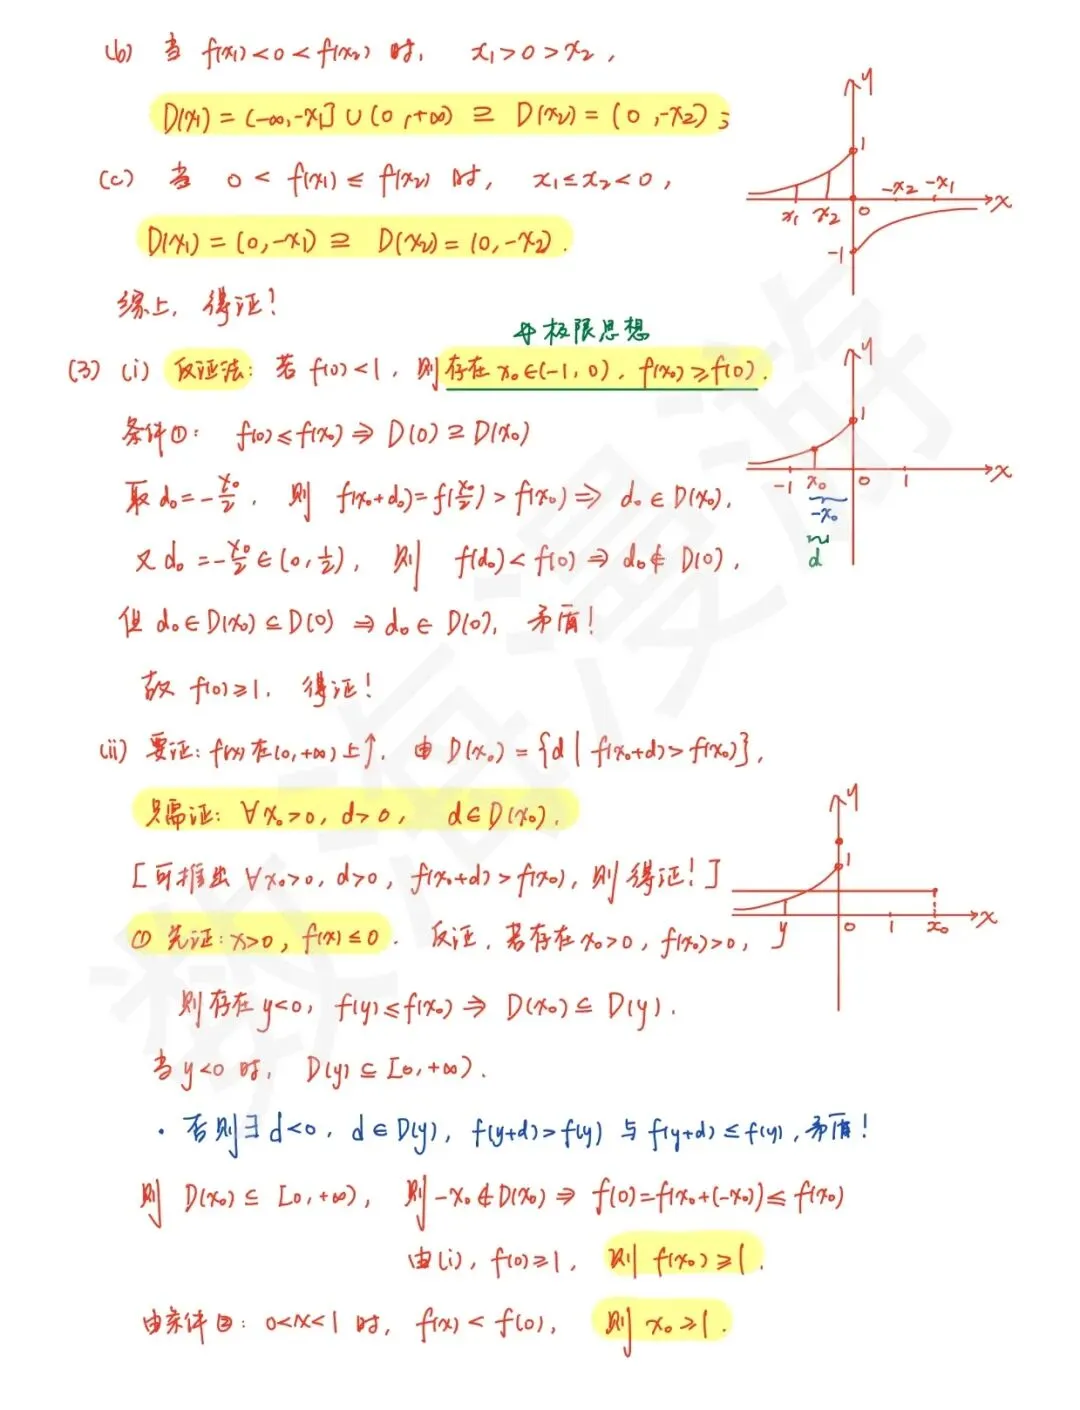 (b) 当 f(x₁)<0<f(x₂) 时, x₁>0>x₂,
D(x₁)=(-∞,-x₁]∪(0,+∞) ⊇ D(x₂)=(0,-x₂);
(c) 当 0<f(x₁)≤f(x₂) 时, x₁≤x₂<0,
D(x₁)=(0,-x₁) ⊇ D(x₂)=(0,-x₂).
综上, 得证!
y
1
x₁ x₂ 0 -x₂ -x₁ x
-1
极限思想
(3) (i) 反证法: 若 f(0)<1, 则存在 x₀∈(-1,0), f(x₀)≥f(0).
条件①: f(0)≤f(x₀) ⇒ D(0)⊇D(x₀)
取 d₀=-x₀/2, 则 f(x₀+d₀)=f(x₀/2)>f(x₀) ⇒ d₀∈D(x₀),
又 d₀=-x₀/2∈(0,1/2), 则 f(d₀)<f(0) ⇒ d₀∉D(0),
但 d₀∈D(x₀)⊆D(0) ⇒ d₀∈D(0), 矛盾!
故 f(0)≥1, 得证!
y
1
-1 x₀ 0 1 x
-x₀
d
(ii) 要证: f(x)在(0,+∞)上↑, 由 D(x₀)={d | f(x₀+d)>f(x₀)},
只需证: ∀x₀>0, d>0, d∈D(x₀).
[可推出 ∀x₀>0, d>0, f(x₀+d)>f(x₀), 则得证!]
① 先证: x>0, f(x)≤0. 反证, 若存在 x₀>0, f(x₀)>0,
则存在 y<0, f(y)≤f(x₀) ⇒ D(x₀)⊆D(y).
y
1
y 0 1 x₀ x
当 y<0 时, D(y)⊆[0,+∞).
· 否则∃d<0, d∈D(y), f(y+d)>f(y) 与 f(y+d)≤f(y), 矛盾!
则 D(x₀)⊆[0,+∞), 则 -x₀∉D(x₀) ⇒ f(0)=f(x₀+(-x₀))≤f(x₀)
由(i), f(0)≥1, 则 f(x₀)≥1.
由条件②: 0<x<1 时, f(x)<f(0), 则 x₀≥1.
数海漫游